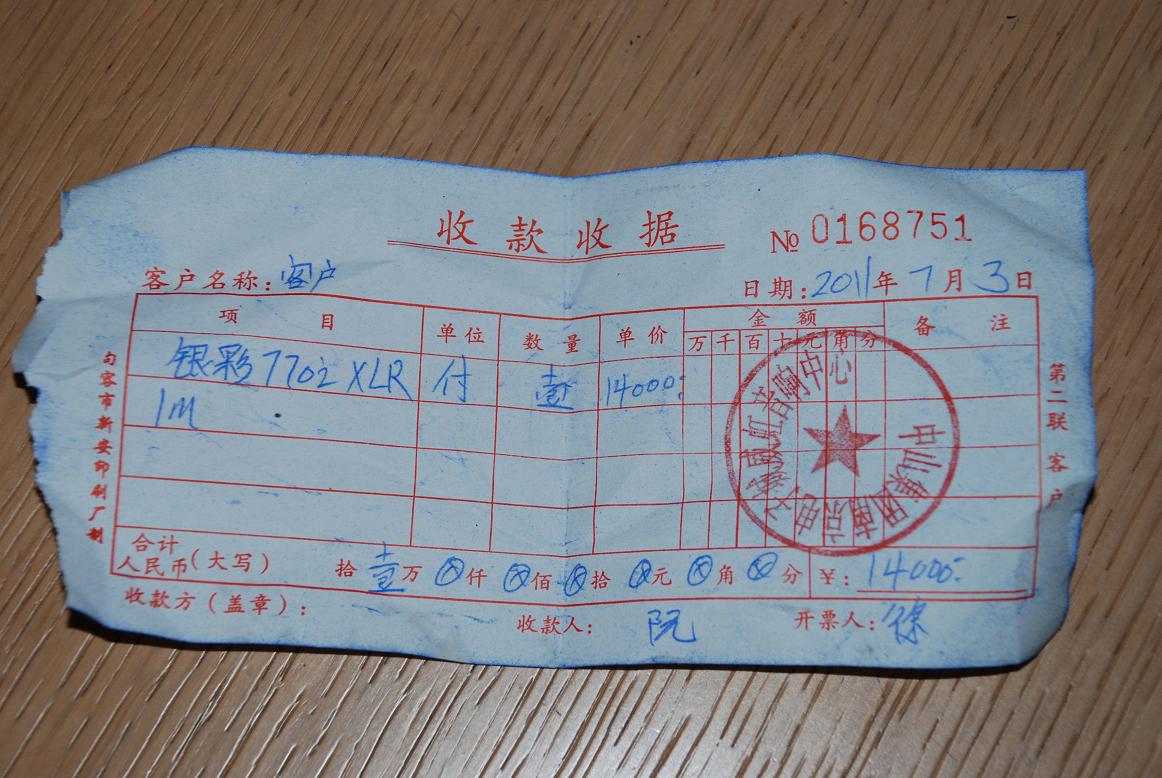 收款收据
№ 0168751
客户名称：客户
日期：2011年7月3日
项目 单位 数量 单价 金额 备注
万 千 百 十 元 角 分
银彩 7702 XLR 付 壹 14000:
1M
合计
人民币（大写） 拾 壹万 仟 佰 拾 元 角 分 ¥：14000:
收款方（盖章）： 收款人：阮 开票人：徐
句容市新安印刷厂制
第二联 客户
中山集团南京电子 音响中心